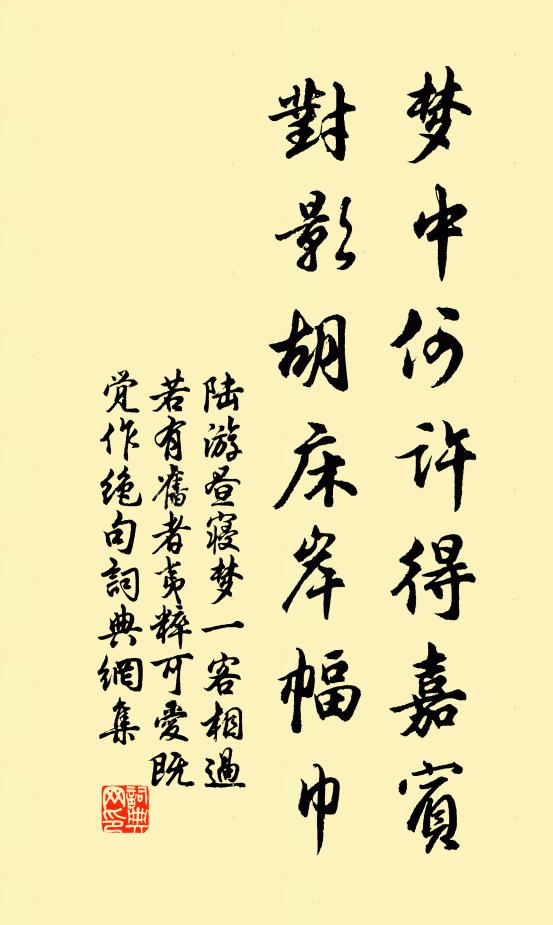 梦中何许得嘉賓
對影胡床岸幅巾
陆游昼寝梦一客相過
若有舊者夷粹可愛既
觉作绝句詞典網集
詞典网印